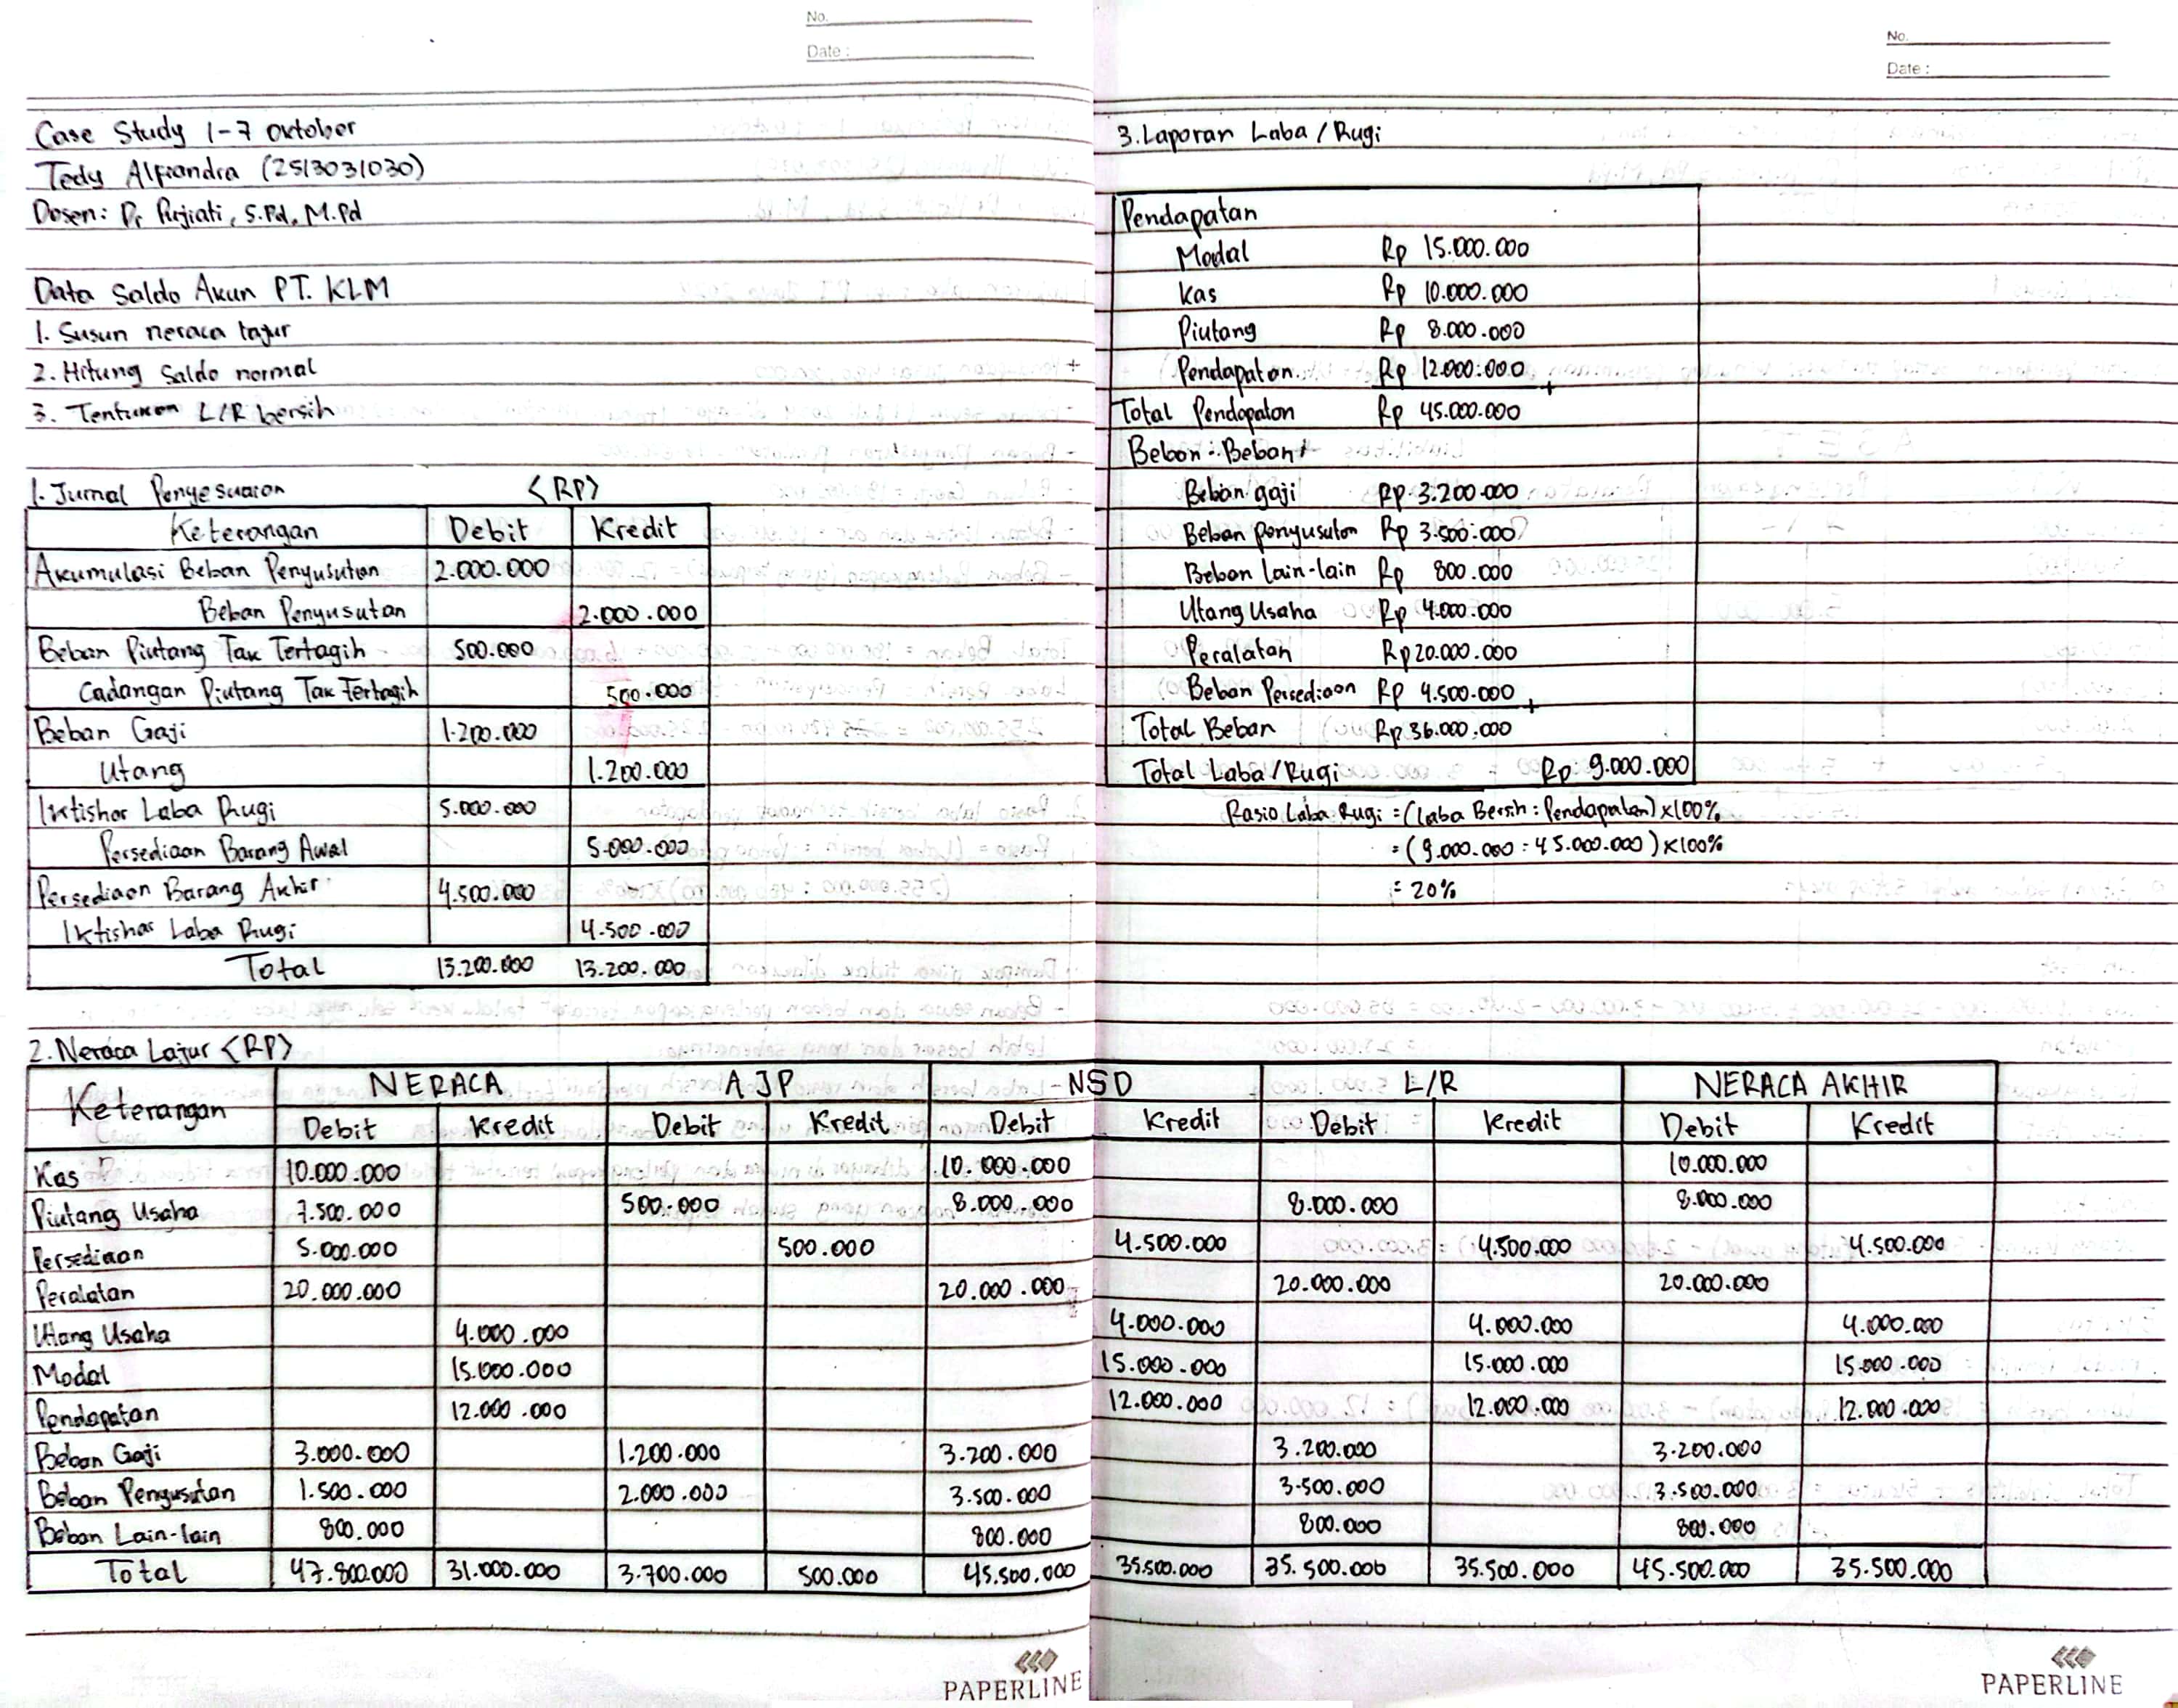 No.
Date :
Case Study 1-7 Oktober
Tedy Alfiandra (2513031030)
Dosen: Dr Pujiati, S.Pd, M.Pd
Data Saldo Akun PT. KLM
1. Susun neraca lajur
2. Hitung Saldo normal
3. Tentukan L/R bersih
1. Jurnal Penyesuaian <RP>
Keterangan Debit Kredit
Akumulasi Beban Penyusutan 2.000.000
Beban Penyusutan 2.000.000
Beban Piutang Tak Tertagih 500.000
Cadangan Piutang Tak Tertagih 500.000
Beban Gaji 1.200.000
Utang 1.200.000
Iktishar Laba Rugi 5.000.000
Persediaan Barang Awal 5.000.000
Persediaan Barang Akhir 4.500.000
Iktishar Laba Rugi 4.500.000
Total 13.200.000 13.200.000
No.
Date :
3. Laporan Laba / Rugi
Pendapatan
Modal Rp 15.000.000
Kas Rp 10.000.000
Piutang Rp 8.000.000
Pendapatan Rp 12.000.000 +
Total Pendapatan Rp 45.000.000
Beban-Beban
Beban gaji Rp 3.200.000
Beban penyusutan Rp 3.500.000
Beban Lain-lain Rp 800.000
Utang Usaha Rp 4.000.000
Peralatan Rp 20.000.000
Beban Persediaan Rp 4.500.000 +
Total Beban Rp 36.000.000
Total Laba/Rugi Rp 9.000.000
Rasio Laba Rugi = (Laba Bersih : Pendapatan) x 100%
= (9.000.000 : 45.000.000) x 100%
= 20%
2. Neraca Lajur <RP>
Keterangan NERACA AJP NSD L/R NERACA AKHIR
Debit Kredit Debit Kredit Debit Kredit Debit Kredit Debit Kredit
Kas 10.000.000 10.000.000 10.000.000
Piutang Usaha 7.500.000 500.000 8.000.000 8.000.000 8.000.000
Persediaan 5.000.000 500.000 4.500.000 4.500.000 4.500.000
Peralatan 20.000.000 20.000.000 20.000.000 20.000.000
Utang Usaha 4.000.000 4.000.000 4.000.000 4.000.000
Modal 15.000.000 15.000.000 15.000.000 15.000.000
Pendapatan 12.000.000 12.000.000 12.000.000 12.000.000
Beban Gaji 3.000.000 1.200.000 3.200.000 3.200.000 3.200.000
Beban Penyusutan 1.500.000 2.000.000 3.500.000 3.500.000 3.500.000
Beban Lain-lain 800.000 800.000 800.000 800.000
Total 47.800.000 31.000.000 3.700.000 500.000 45.500.000 35.500.000 35.500.000 35.500.000 45.500.000 35.500.000
PAPERLINE
PAPERLINE